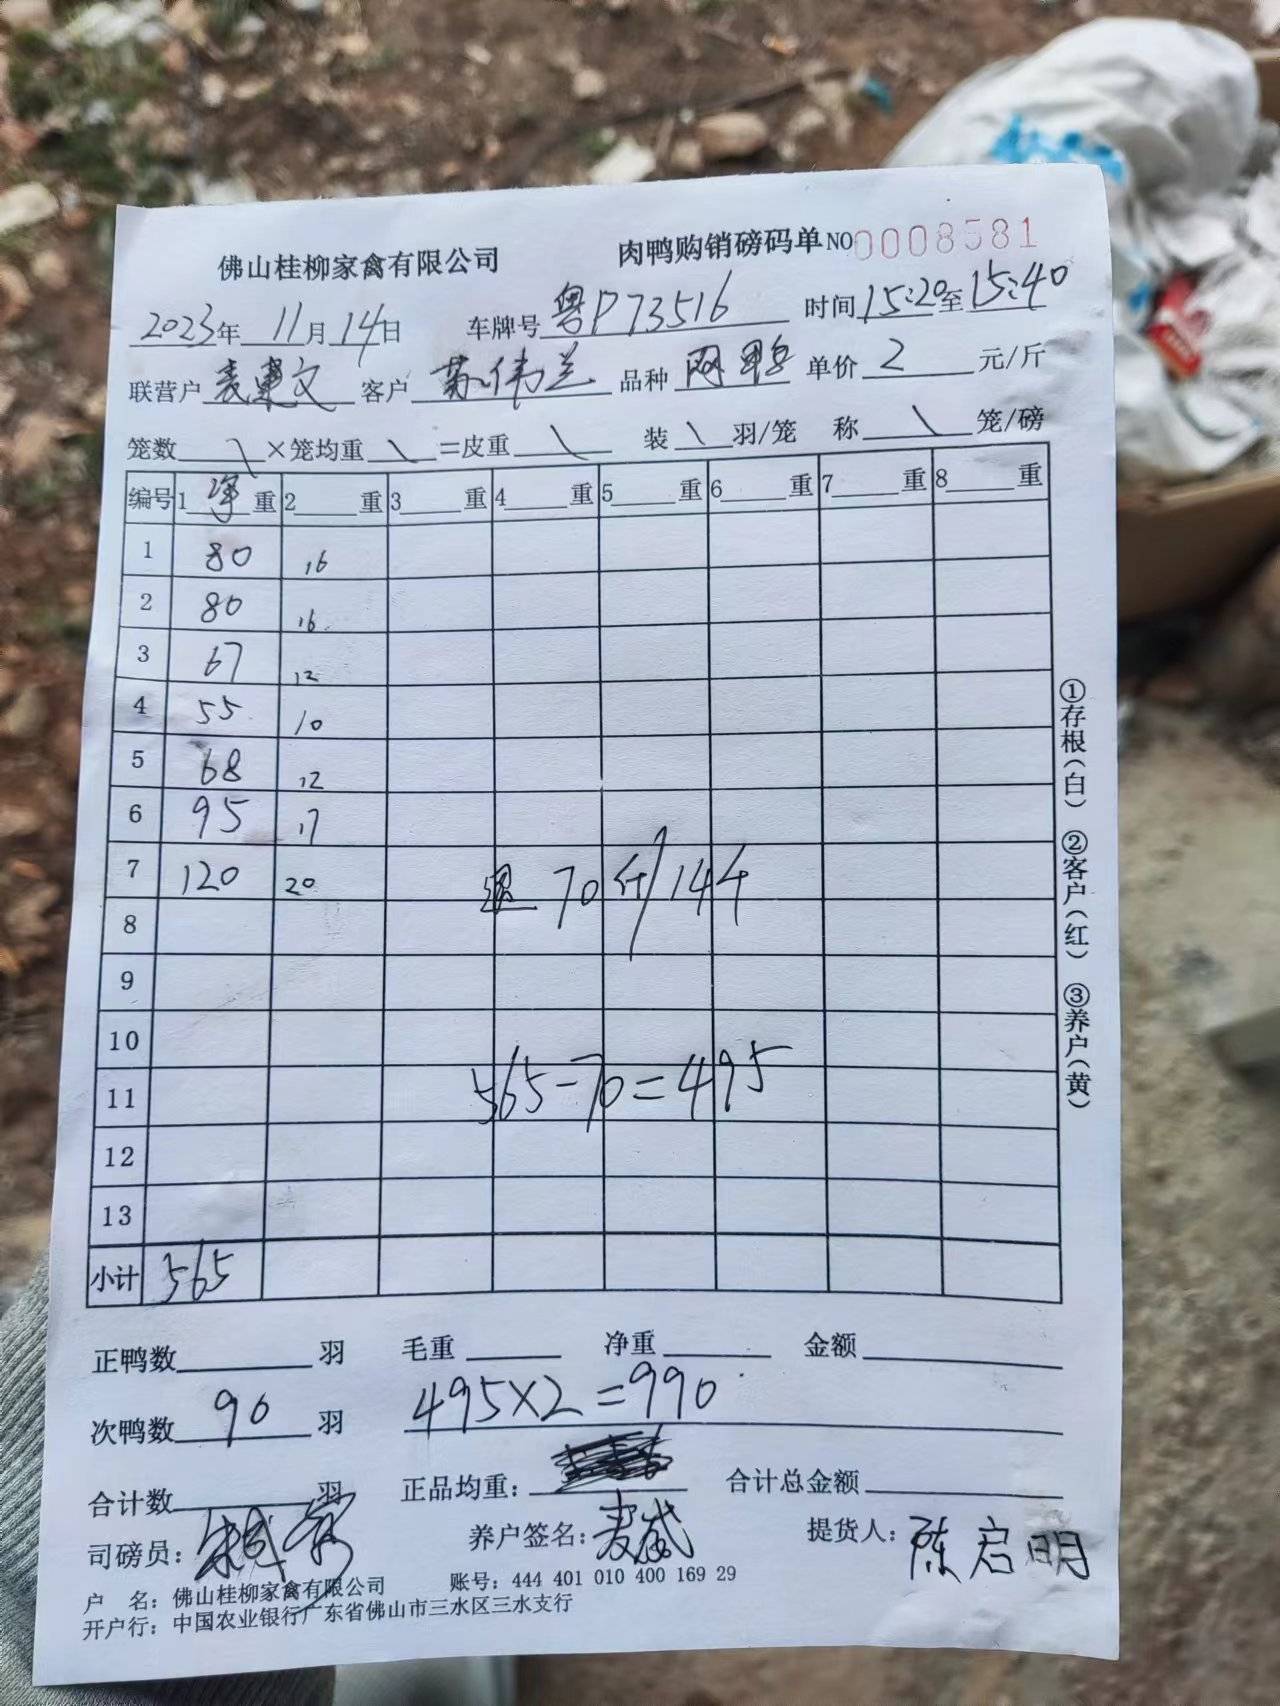 佛山桂柳家禽有限公司 肉鸭购销磅码单 NO 0008581
2023年 11月 14日 车牌号 粤P73516 时间 15:20 至 15:40
联营户 袁建文 客户 苏伟兰 品种 网鸭 单价 2 元/斤
笼数 \ ×笼均重 \ =皮重 \ 装 \ 羽/笼 称 \ 笼/磅
编号 1 净 重 2 重 3 重 4 重 5 重 6 重 7 重 8 重
1 80 16
2 80 16
3 67 12
4 55 10
5 68 12
6 95 17
7 120 20 退 70斤/14千
8
9
10
11 565-70=495
12
13
小计 565
①存根(白) ②客户(红) ③养户(黄)
正鸭数 羽 毛重 净重 金额
次鸭数 90 羽 495×2=990
合计数 羽 正品均重: 合计总金额
司磅员: 养户签名: 提货人: 陈启明
户 名: 佛山桂柳家禽有限公司 账号: 444 401 010 400 169 29
开户行: 中国农业银行广东省佛山市三水区三水支行